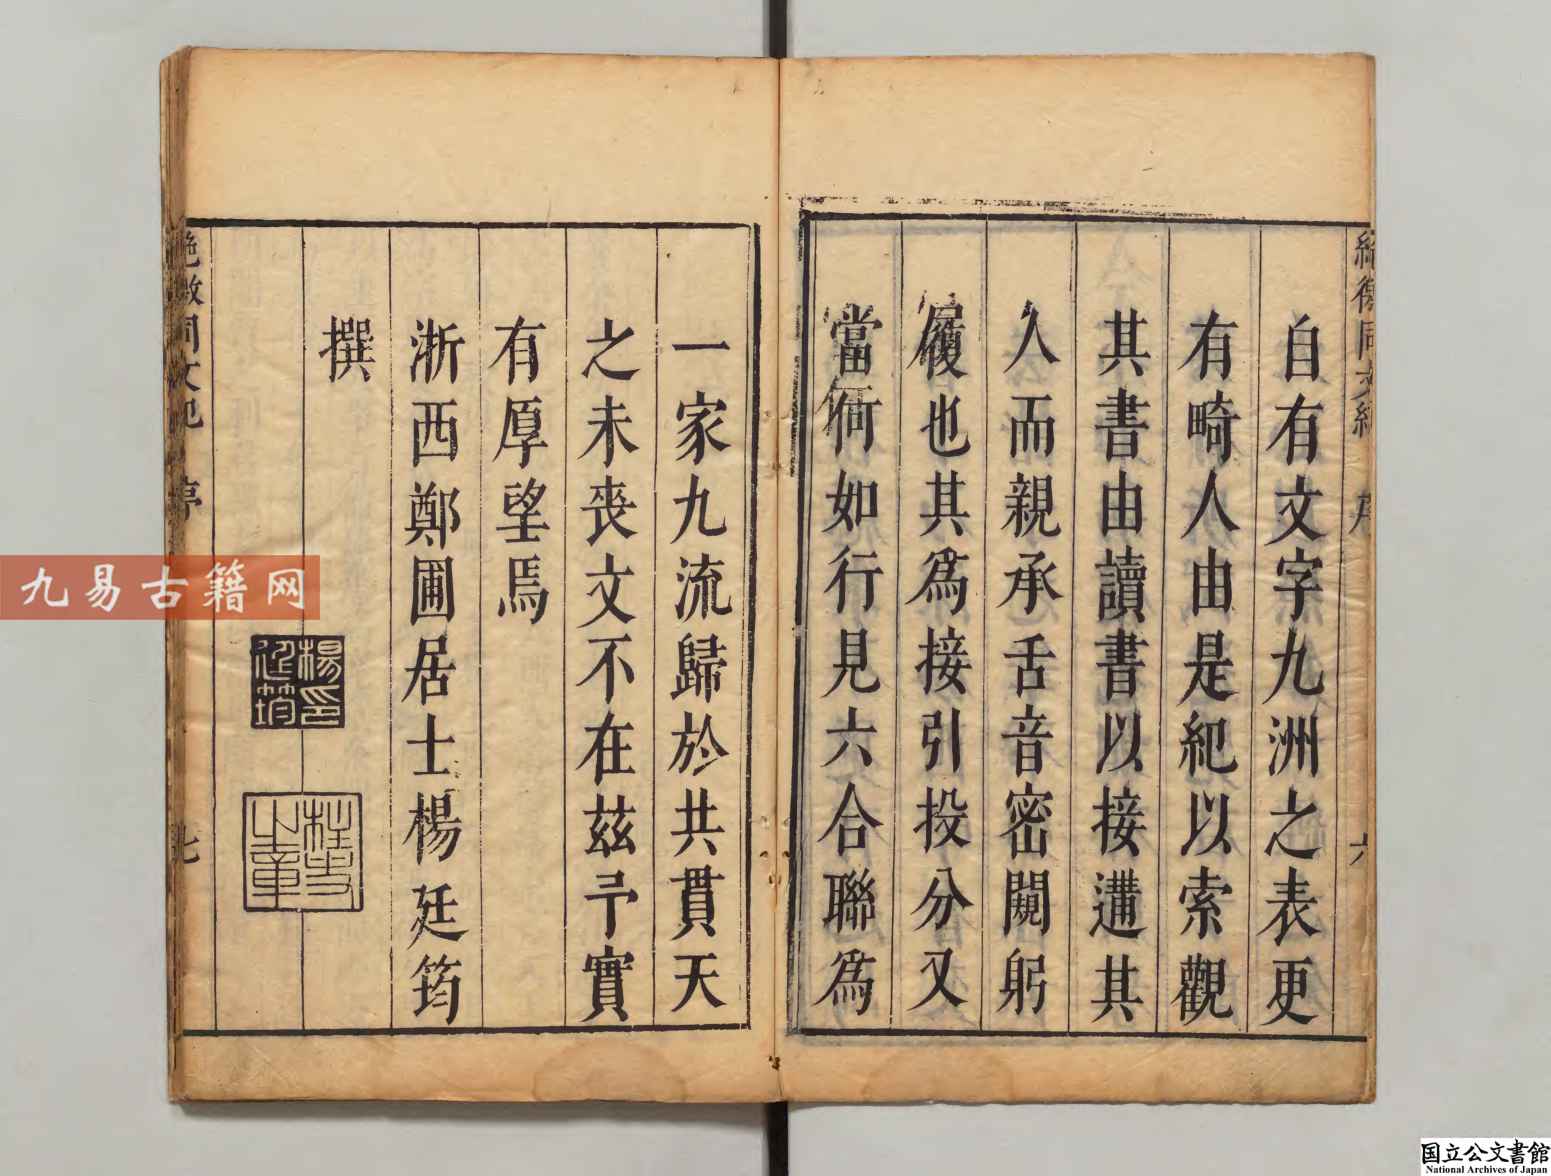 自有文字九洲之表更
有畸人由是紀以索觀
其書由讀書以接遘其
人而親承舌音密闚躬
履也其為接引投分又
當何如行見六合聯為
一家九流歸於共貫天
之未喪文不在茲予實
有厚望焉
浙西鄭圃居士楊廷筠
撰
絕徼同文紀 序
六
七
楊廷筠印
之章
九易古籍网
国立公文書館
National Archives of Japan